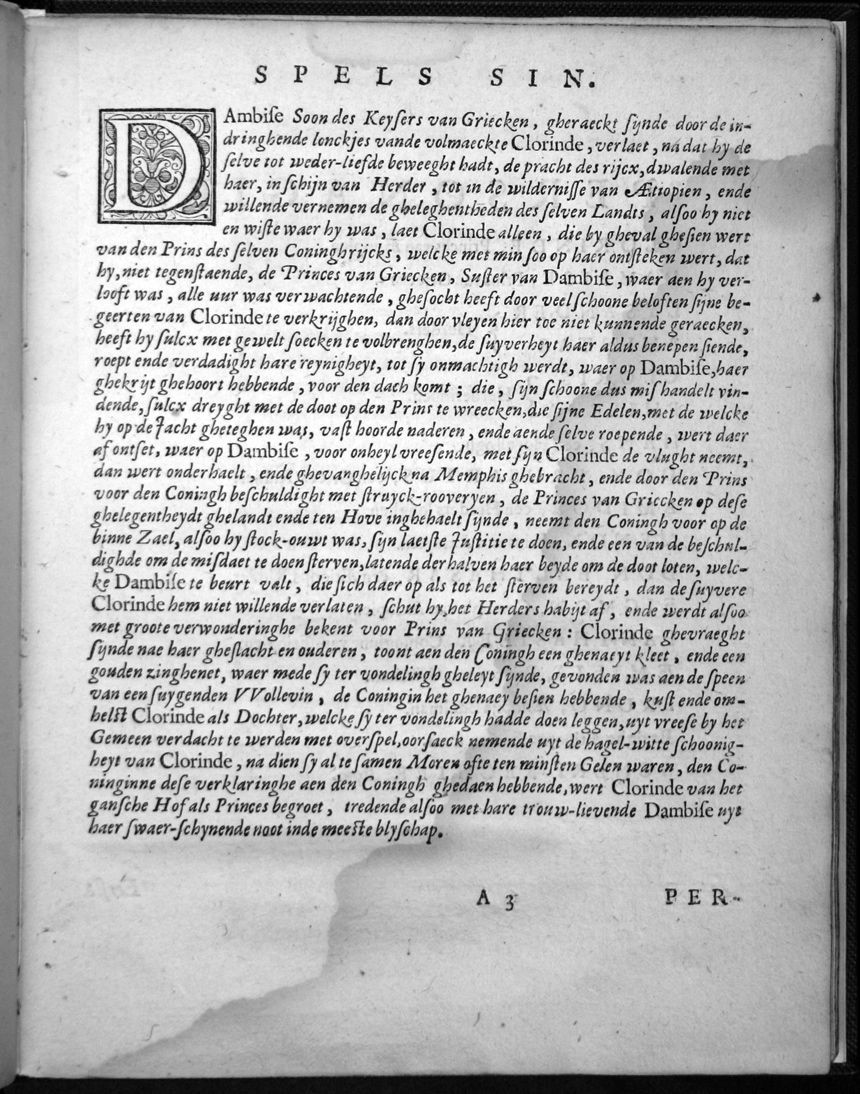 SPELS SIN.
DAmbiſe Soon des Keyſers van Griecken, gheraeckt ſijnde door de in-
dringhende lonckjes vande volmaeckte Clorinde, verlaet, na dat hy de
ſelve tot weder-liefde beweeght hadt, de pracht des rijcx, dwalende met
haer, in ſchijn van Herder, tot in de wilderniſſe van Ætiopien, ende
willende vernemen de gheleghentheden des ſelven Landts, alſoo hy niet
en wiſte waer hy was, laet Clorinde alleen, die by gheval gheſien wert
van den Prins des ſelven Coninghrijcks, welcke met min ſoo op haer ontſteken wert, dat
hy, niet tegenſtaende, de Princes van Griecken, Suſter van Dambiſe, waer aen hy ver-
looft was, alle uur was verwachtende, gheſocht heeft door veel ſchoone beloften ſijne be-
geerten van Clorinde te verkrijghen, dan door vleyen hier toe niet kunnende geraecken,
heeft hy ſulcx met gewelt ſoecken te volbrenghen, de ſuyverheyt haer aldus benepen ſiende,
roept ende verdadight hare reynigheyt, tot ſy onmachtigh werdt, waer op Dambiſe, haer
ghekrijt ghehoort hebbende, voor den dach komt; die, ſijn ſchoone dus miſhandelt vin-
dende, ſulcx dreyght met de doot op den Prins te wreecken, die ſijne Edelen, met de welcke
hy op de Jacht gheteghen was, vaſt hoorde naderen, ende aende ſelve roepende, wert daer
af ontſet, waer op Dambiſe, voor onheyl vreeſende, met ſijn Clorinde de vlught neemt,
dan wert onderhaelt, ende ghevanghelijck na Memphis ghebracht, ende door den Prins
voor den Coningh beſchuldight met ſtruyck-rooveryen, de Princes van Griecken op deſe
ghelegentheydt ghelandt ende ten Hove inghehaelt ſijnde, neemt den Coningh voor op de
binne Zael, alſoo hy ſtock-ouwt was, ſijn laetſte Juſtitie te doen, ende een van de beſchul-
dighde om de miſdaet te doen ſterven, latende derhalven haer beyde om de doot loten, welc-
ke Dambiſe te beurt valt, die ſich daer op als tot het ſterven bereydt, dan de ſuyvere
Clorinde hem niet willende verlaten, ſchut hy het Herders habijt af, ende werdt alſoo
met groote verwonderinghe bekent voor Prins van Griecken: Clorinde ghevraeght
ſijnde nae haer gheſlacht en ouderen, toont aen den Coningh een ghenaeyt kleet, ende een
gouden zinghenet, waer mede ſy ter vondelingh gheleyt ſijnde, gevonden was aen de ſpeen
van een ſuygenden VVollevin, de Coningin het ghenaey beſien hebbende, kuſt ende om-
helſt Clorinde als Dochter, welcke ſy ter vondelingh hadde doen leggen, uyt vreeſe by het
Gemeen verdacht te werden met overſpel, oorſaeck nemende uyt de hagel-witte ſchoonig-
heyt van Clorinde, na dien ſy al te ſamen Moren ofte ten minſten Gelen waren, den Co-
ninginne deſe verklaringhe aen den Coningh ghedaen hebbende, wert Clorinde van het
ganſche Hof als Princes begroet, tredende alſoo met hare trouw-lievende Dambiſe uyt
haer ſwaer-ſchynende noot inde meeſte blyſchap.
A 3 PER-